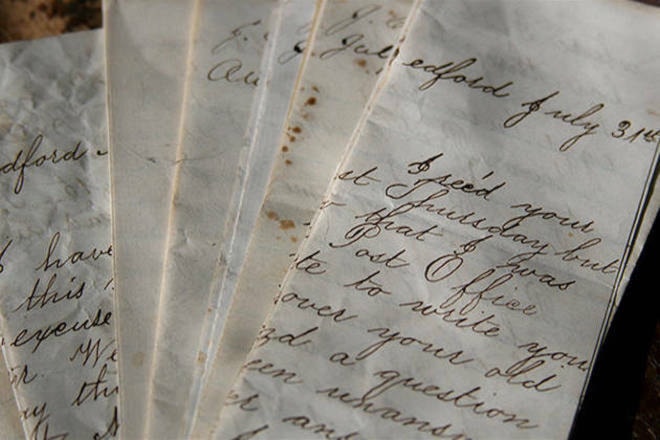 dford
I have
this
excuse
We
edford July 31st
I rec'd your
st Thursday but
that I was
Post Office
te to write you
over your old
a question
een unansw
er